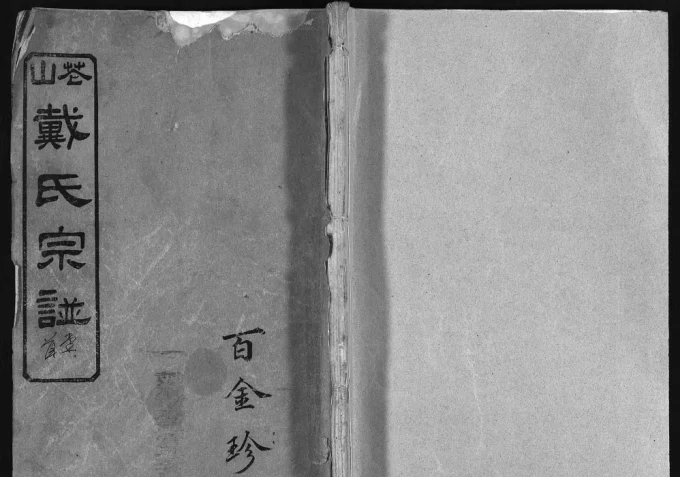 山
戴氏宗譜
卷首
百金珍